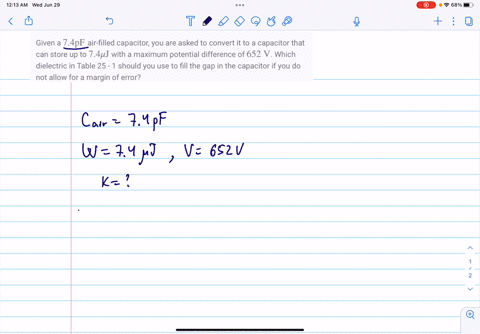 12:13 AM Wed Jun 29
68%
Given a 7.4pF air-filled capacitor, you are asked to convert it to a capacitor that
can store up to 7.4μJ with a maximum potential difference of 652 V. Which
dielectric in Table 25 - 1 should you use to fill the gap in the capacitor if you do
not allow for a margin of error?
Cair = 7.4 pF
W = 7.4 μJ , V = 652V
K = ?
1
2